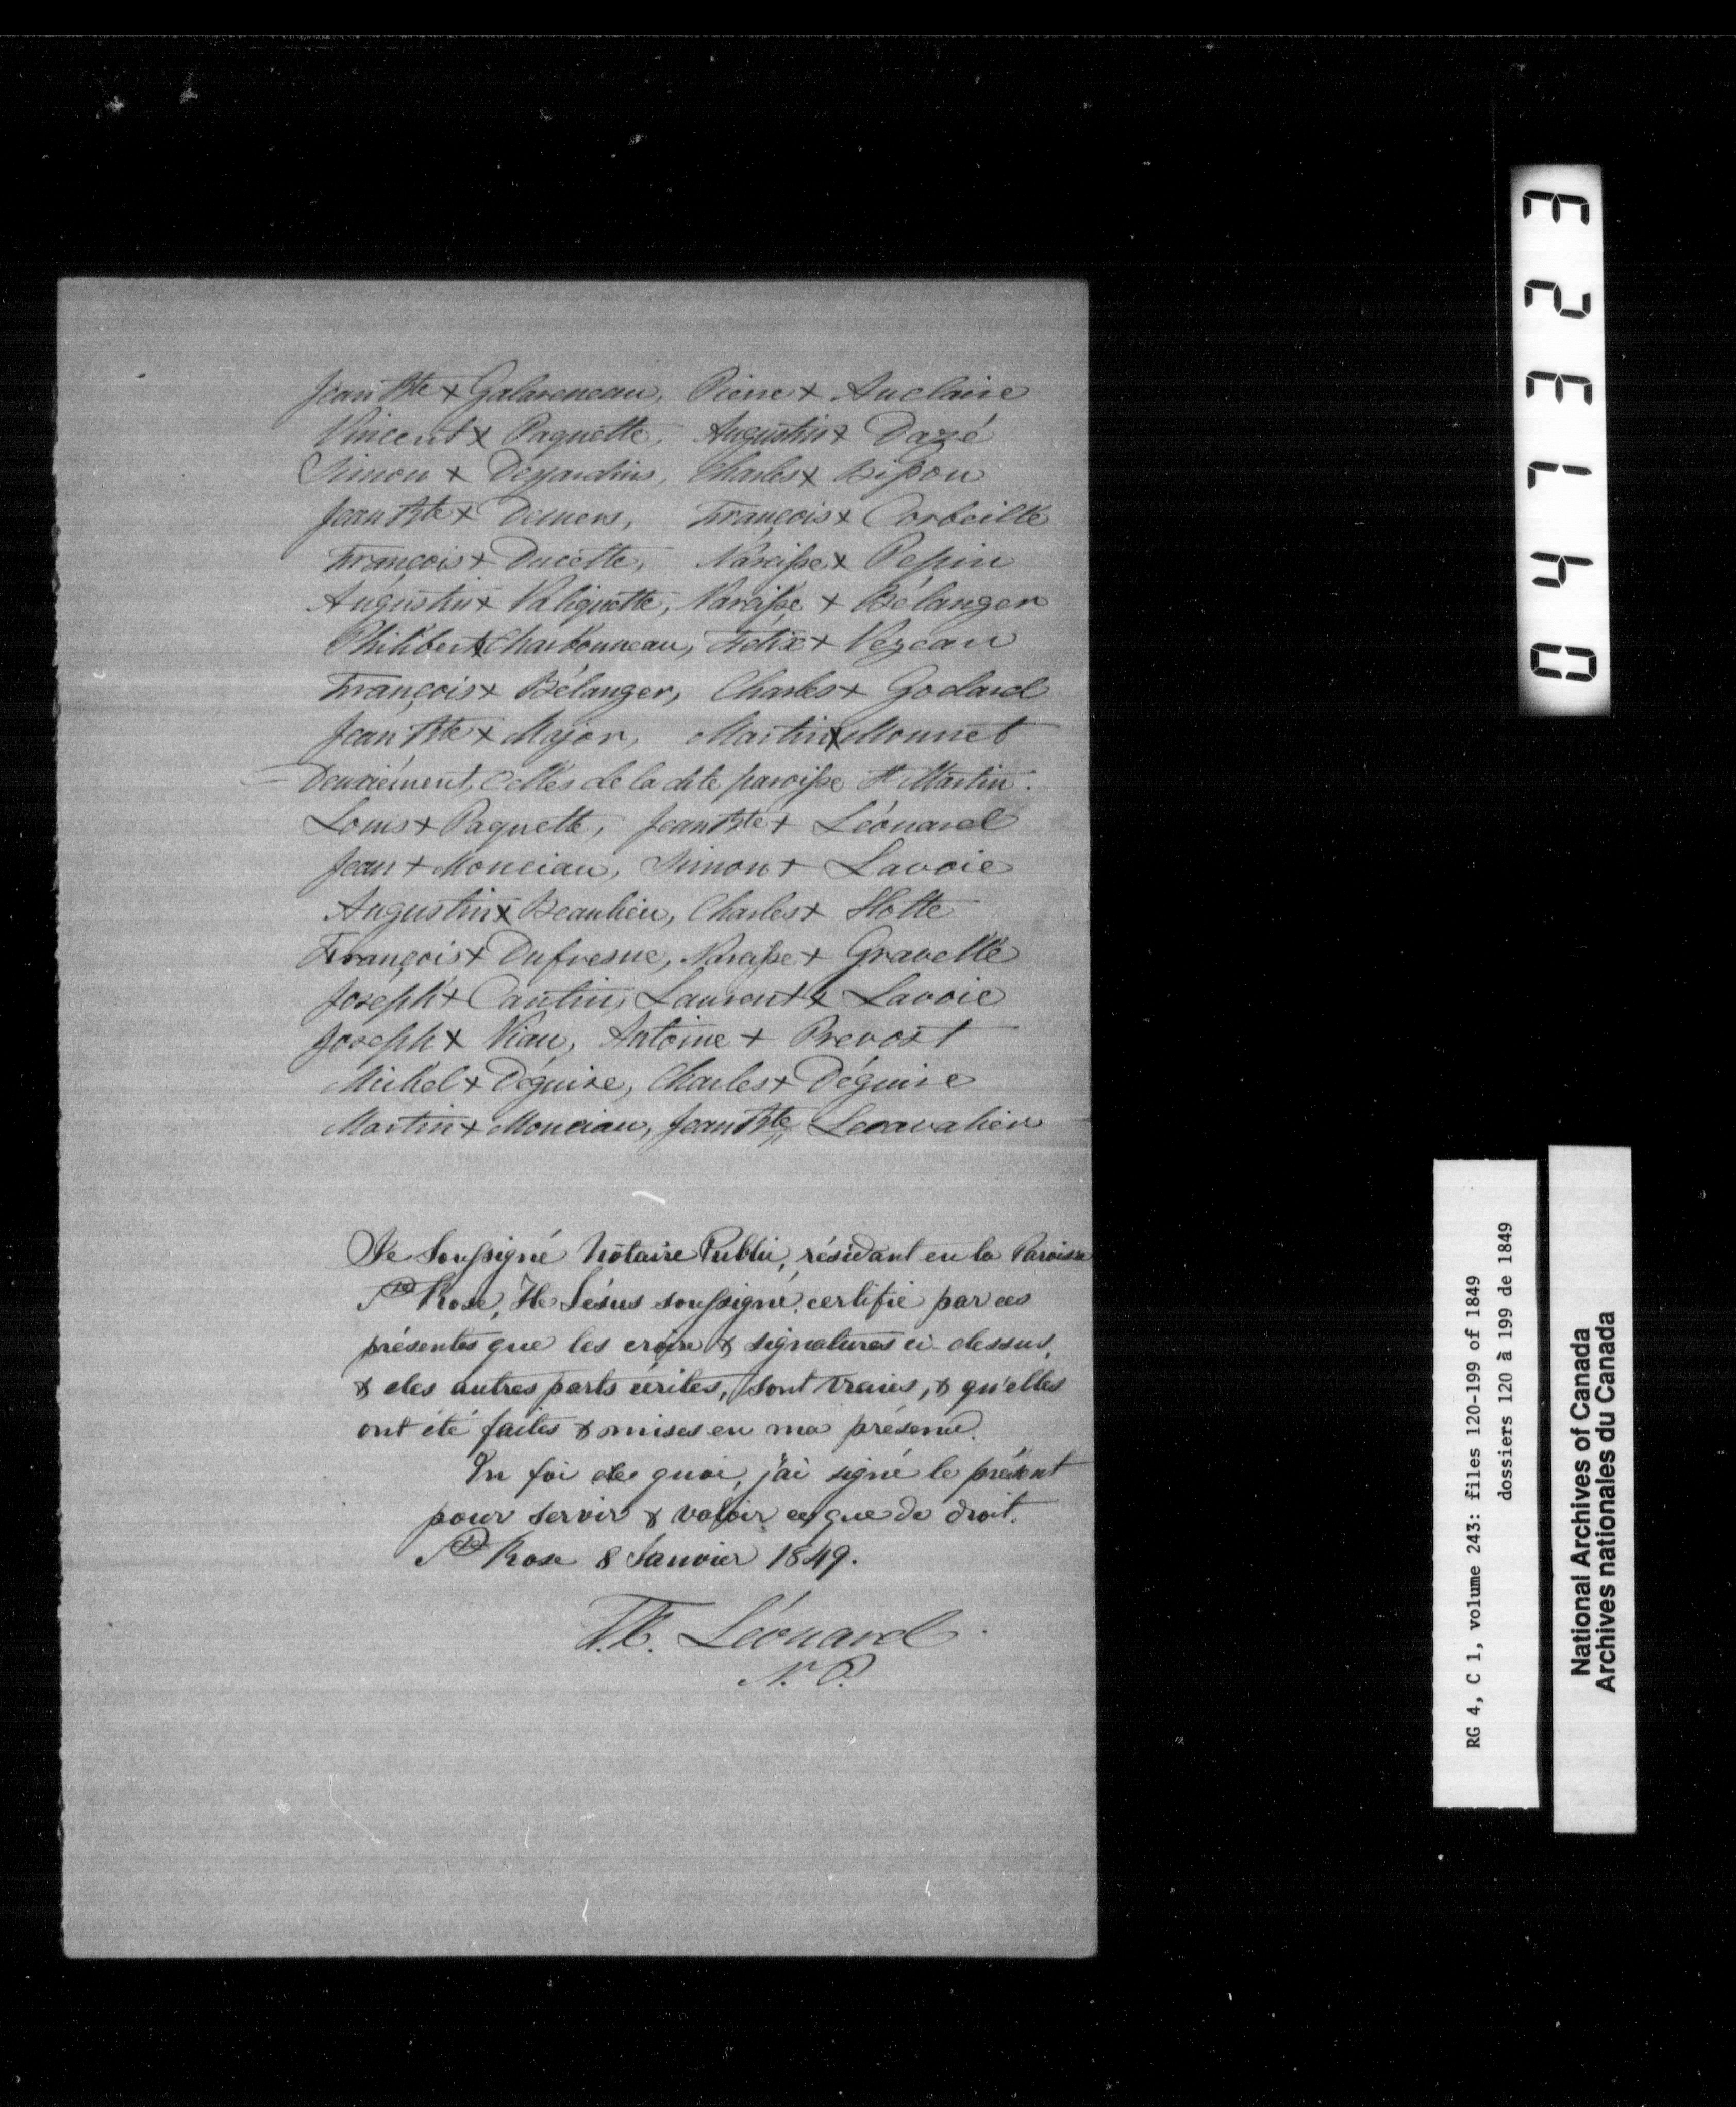 Jean Bte + Galarneneau, Pierre + Auclaire
Vincent + Paquette, Augustin + Dazé
Simon + Desjardins, Charles + Bisson
Jean Bte + Demers, François + Corbeille
François + Ducette, Narcisse + Pepin
Augustin + Valiquette, Narcisse + Bélanger
Philibert + Charbonneau, Félix + Vezeau
François + Bélanger, Charles + Godard
Jean Bte + Major, Martin + Monnet
Deuxièment, Celles de la dite paroisse St Martin.
Louis + Paquette, Jean Bte + Léonard
Jean + Monciau, Simon + Lavoie
Augustin + Beaulieu, Charles + Hotte
François + Dufresne, Narcisse + Gravelle
Joseph + Cantin, Laurent + Lavoie
Joseph + Viau, Antoine + Prevost
Michel + Déguire, Charles + Déguire
Martin + Monciau, Jean Bte Lecavalier
Je Soussigné Notaire Public, résidant en la Paroisse
Ste Rose, Ile Jésus soussigné, certifie par ces
présentes que les croix & signatures ci-dessus,
& des autres parts écrites, sont vraies, & qu'elles
ont été faites & mises en ma présence.
En foi de quoi, j'ai signé le présent
pour servir & valoir ce que de droit.
Ste Rose 8 Janvier 1849.
F.E. Léonard
N.P.
047323
RG 4, C 1, volume 243: files 120-199 of 1849
dossiers 120 à 199 de 1849
National Archives of Canada
Archives nationales du Canada